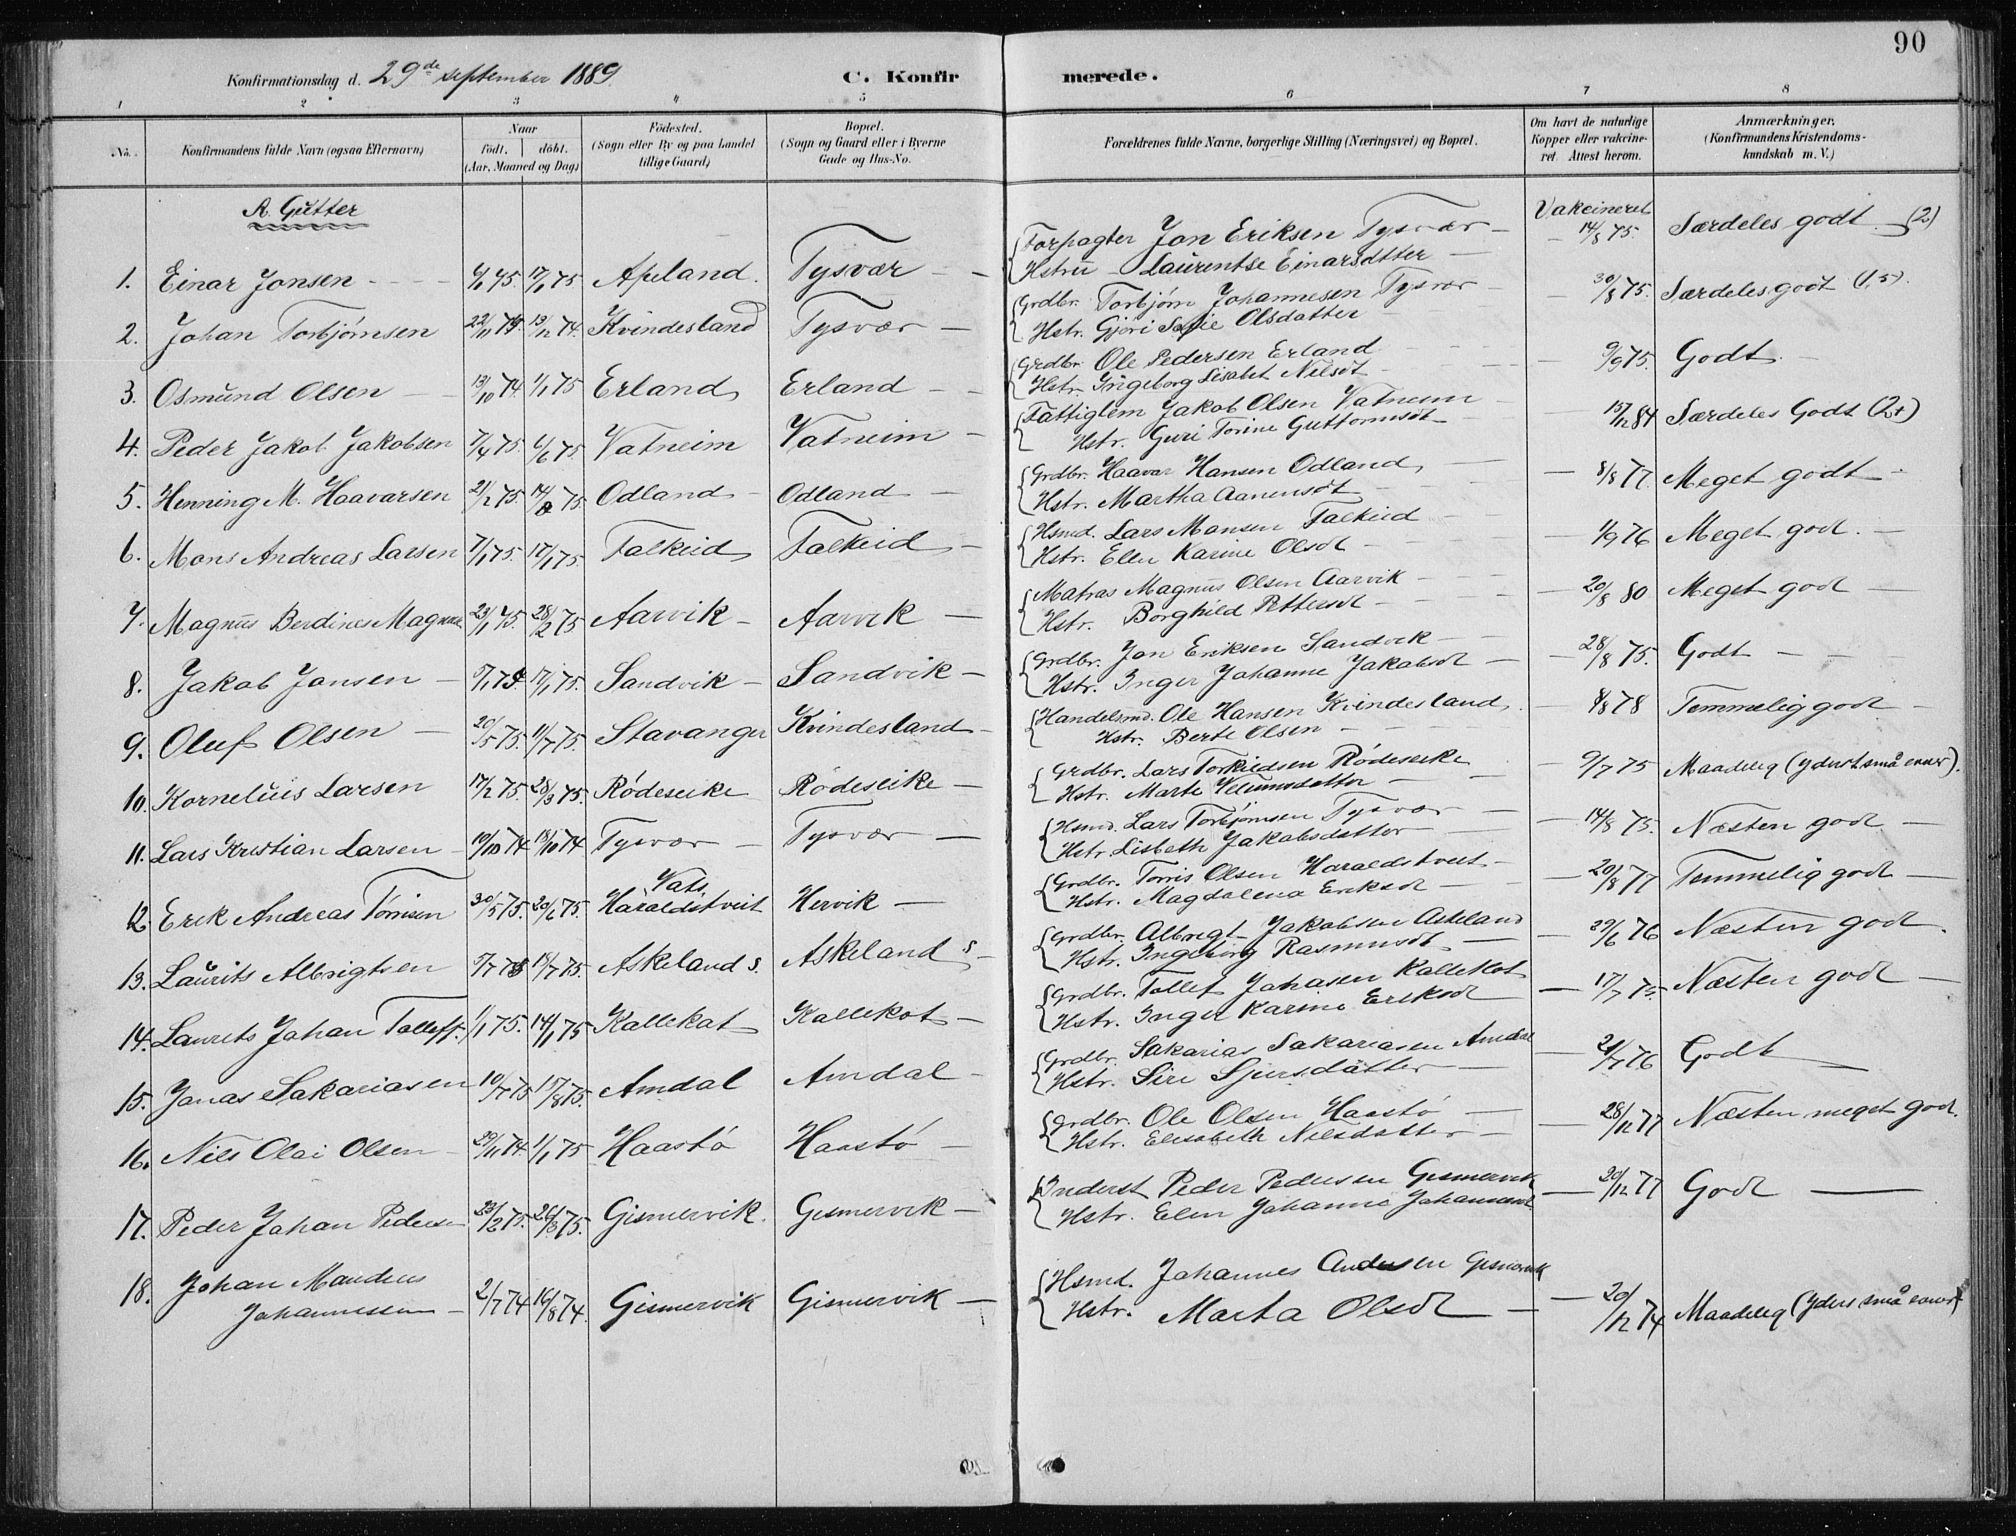 90
Konfirmationsdag d. 29de september 1889.
C. Konfirmerede.
1 2 3 4 5 6 7 8
No. Konfirmandens fulde Navn (ogsaa Efternavn) Naar födt. döbt. (Aar, Maaned og Dag) Födested. (Sogn eller By og paa Landet tillige Gaard) Bopæl. (Sogn og Gaard eller i Byerne Gade og Hus-No. Forældrenes fulde Navne, borgerlige Stilling (Næringsvei) og Bopæl. Om havt de naturlige Kopper eller vakcineret Attest herom. Anmærkninger. (Konfirmandens Kristendomskundskab m. V.)
A. Gutter
Vakcineret
1. Einar Jonsen 17/1 75 Apeland. Tysvær Forpagter Jon Eriksen Tysvær 14/8 75. Særdeles godt (2)
Hstru Laurentse Einarsdtter
2. Johan Torbjørnsen 22/11 74 13/12 74. Kvindesland Tysvær Grdbr. Torbjørn Johannesen Tysvær 30/8 75. Særdeles godt (1,5).
Hstr. Gjøri Sofie Olsdatter
3. Osmund Olsen 13/10 74. 1/1 75 Erland Erland Grdbr. Ole Pedersen Erland 9/9 75. Godt
Hstr. Ingeborg Lisabet Nilsdt
4. Peder Jakob Jakobsen 7/4 75. 6/6 75. Vatneim Vatneim Fattiglem Jakob Olsen Vatneim 15/12 84 Særdeles Godt (2+)
Hstr. Guri Torine Guttormsdt
5. Henning M. Haavarsen 21/2 75. 14/ 75. Odland Odland Grdbr. Haavar Hansen Odland 8/8 77 Meget godt
Hstr. Martha Aanensdt
6. Mons Andreas Larsen 7/1 75. 17/1 75. Falkeid Falkeid Hsmd. Lars Monsen Falkeid 1/9 76 Meget god.
Hstr. Elen Karine Olsdt
7. Magnus Berdines Magnus. 23/1 75. 28/2 75 Aarvik Aarvik Matras Magnus Olsen Aarvik 20/8 80 Meget god
Hstr. Borghild Pettersdt
8. Jakob Jonsen 17/1 75. Sandvik Sandvik Grdbr. Jon Eriksen Sandvik 28/8 75. Godt
Hstr. Inger Johanne Jakobsdt
9. Oluf Olsen 20/5 75. 11/7 75. Stavanger Kvindesland Handelsmd. Ole Hansen Kvindesland 78 Temmelig god
Hstr. Berte Olsen
10. Kornelius Larsen 17/2 75. 28/3 75. Rödeseike Rödeseike Grdbr. Lars Torkildsen Rödeseike 9/7 75 Maadelig (yderst små evner).
Hstr. Marte
11. Lars Kristian Larsen 10/10 74 18/10 74 Tysvær Tysvær Hsmd. Lars Torbjørnsen Tysvær 14/8 75. Næsten god
Hstr. Lisbeth Jakobsdatter
12. Erik Andreas Tørrisen 30/5 75. 20/6 75. Vats Haraldstveit Hervik Grdbr. Tørris Olsen Haraldstveit 20/8 77 Temmelig god
Hstr. Magdalena Eriksdt
13. Laurits Albrigtsen 18/7 75. Askeland s. Askeland s Grdbr. Albregt Jakobsen Askeland 29/6 76 Næsten god.
Hstr. Ingeborg Rasmusdt
14. Laurits Johan Tolleff. 1/1 75. 14/1 75 Kallekat Kallekot Grdbr. Tollef Johasen Kallekot 17/7 75. Næsten god
Hstr. Inger Karine Eriksdt
15. Jonas Sakariasen 10/7 75 15/8 75. Amdal Amdal Grdbr. Sakarias Sakariasen Amdal 21/7 76 Godt
Hstr. Siri Sjursdatter
16. Nils Olai Olsen 29/11 74. 1/1 75 Haastö Haastö Grdbr. Ole Olsen Haastö 28/12 77 Næsten meget god.
Hstr. Elisabeth Nilsdatter
17. Peder Johan Pedersen 23/2 75. 26/3 75. Gismervik. Gismervik Inderst Peder Pedersen Gismervik 20/12 77 God
Hstr. Elen Johanne Johannesdt
18. Johan Mandius 2/7 74 16/8 74. Gismervik Gismervik Hsmd. Johannes Andersen Gismervik 20/12 74 Maadelig (yderst små evner)
Johannessen Hstr. Marta Olsdt